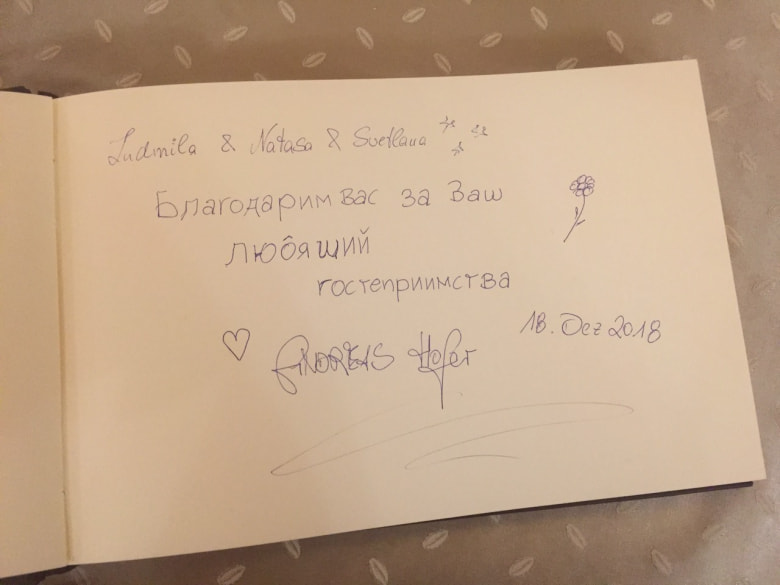 Ludmila & Natasa & Svetlana
Благодарим вас за Ваш
любящий
гостеприимства
18. Dez 2018
ANDREAS Hofer